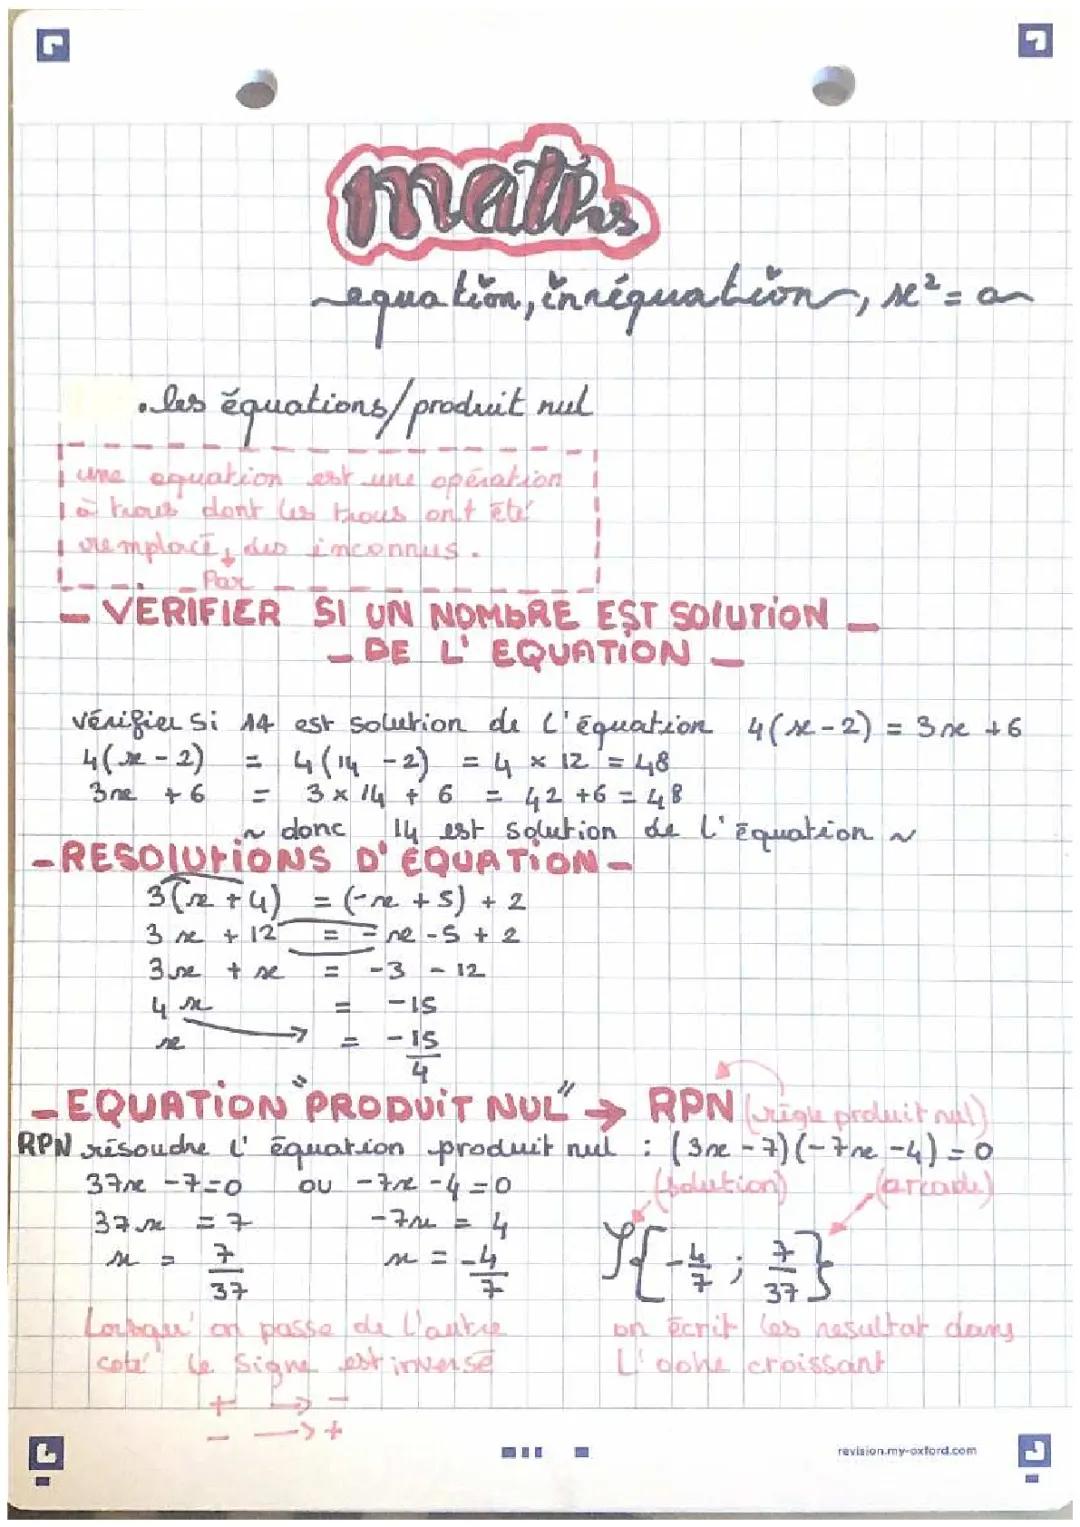 maths
equation, inréquation, x² = a
. les équations/produit nul
une equation est une opération
à trous dont les trous ont été
remplacé, des inconnus.
Par
- VERIFIER SI UN NOMBRE EST SOLUTION -
- DE L' EQUATION -
vérifier si 14 est solution de l'équation 4(x-2) = 3x +6
4(x-2) = 4(14 -2) = 4 × 12 = 48
3x + 6 = 3 × 14 + 6 = 42 +6 = 48
~ donc 14 est solution de l'équation ~
- RESOLUTIONS D' EQUATION -
3(x + 4) = (-x + 5) + 2
3x + 12 = = x - 5 + 2
3x + x = -3 - 12
4x = -15
x = -15
4
- EQUATION "PRODUIT NUL" → RPN (règle produit nul)
RPN résoudre l' équation produit nul : (3x - 7)(-7x - 4) = 0
37x - 7 = 0 ou -7x - 4 = 0 (solution) (arcade)
37x = 7 -7x = 4
x = 7/37 x = -4/7 S{-4/7 ; 7/37}
Lorsqu' on passe de l'autre
coté le signe est inversé
+ → -
- → +
on écrit les resultat dans
L' ordre croissant
revision.my-oxford.com